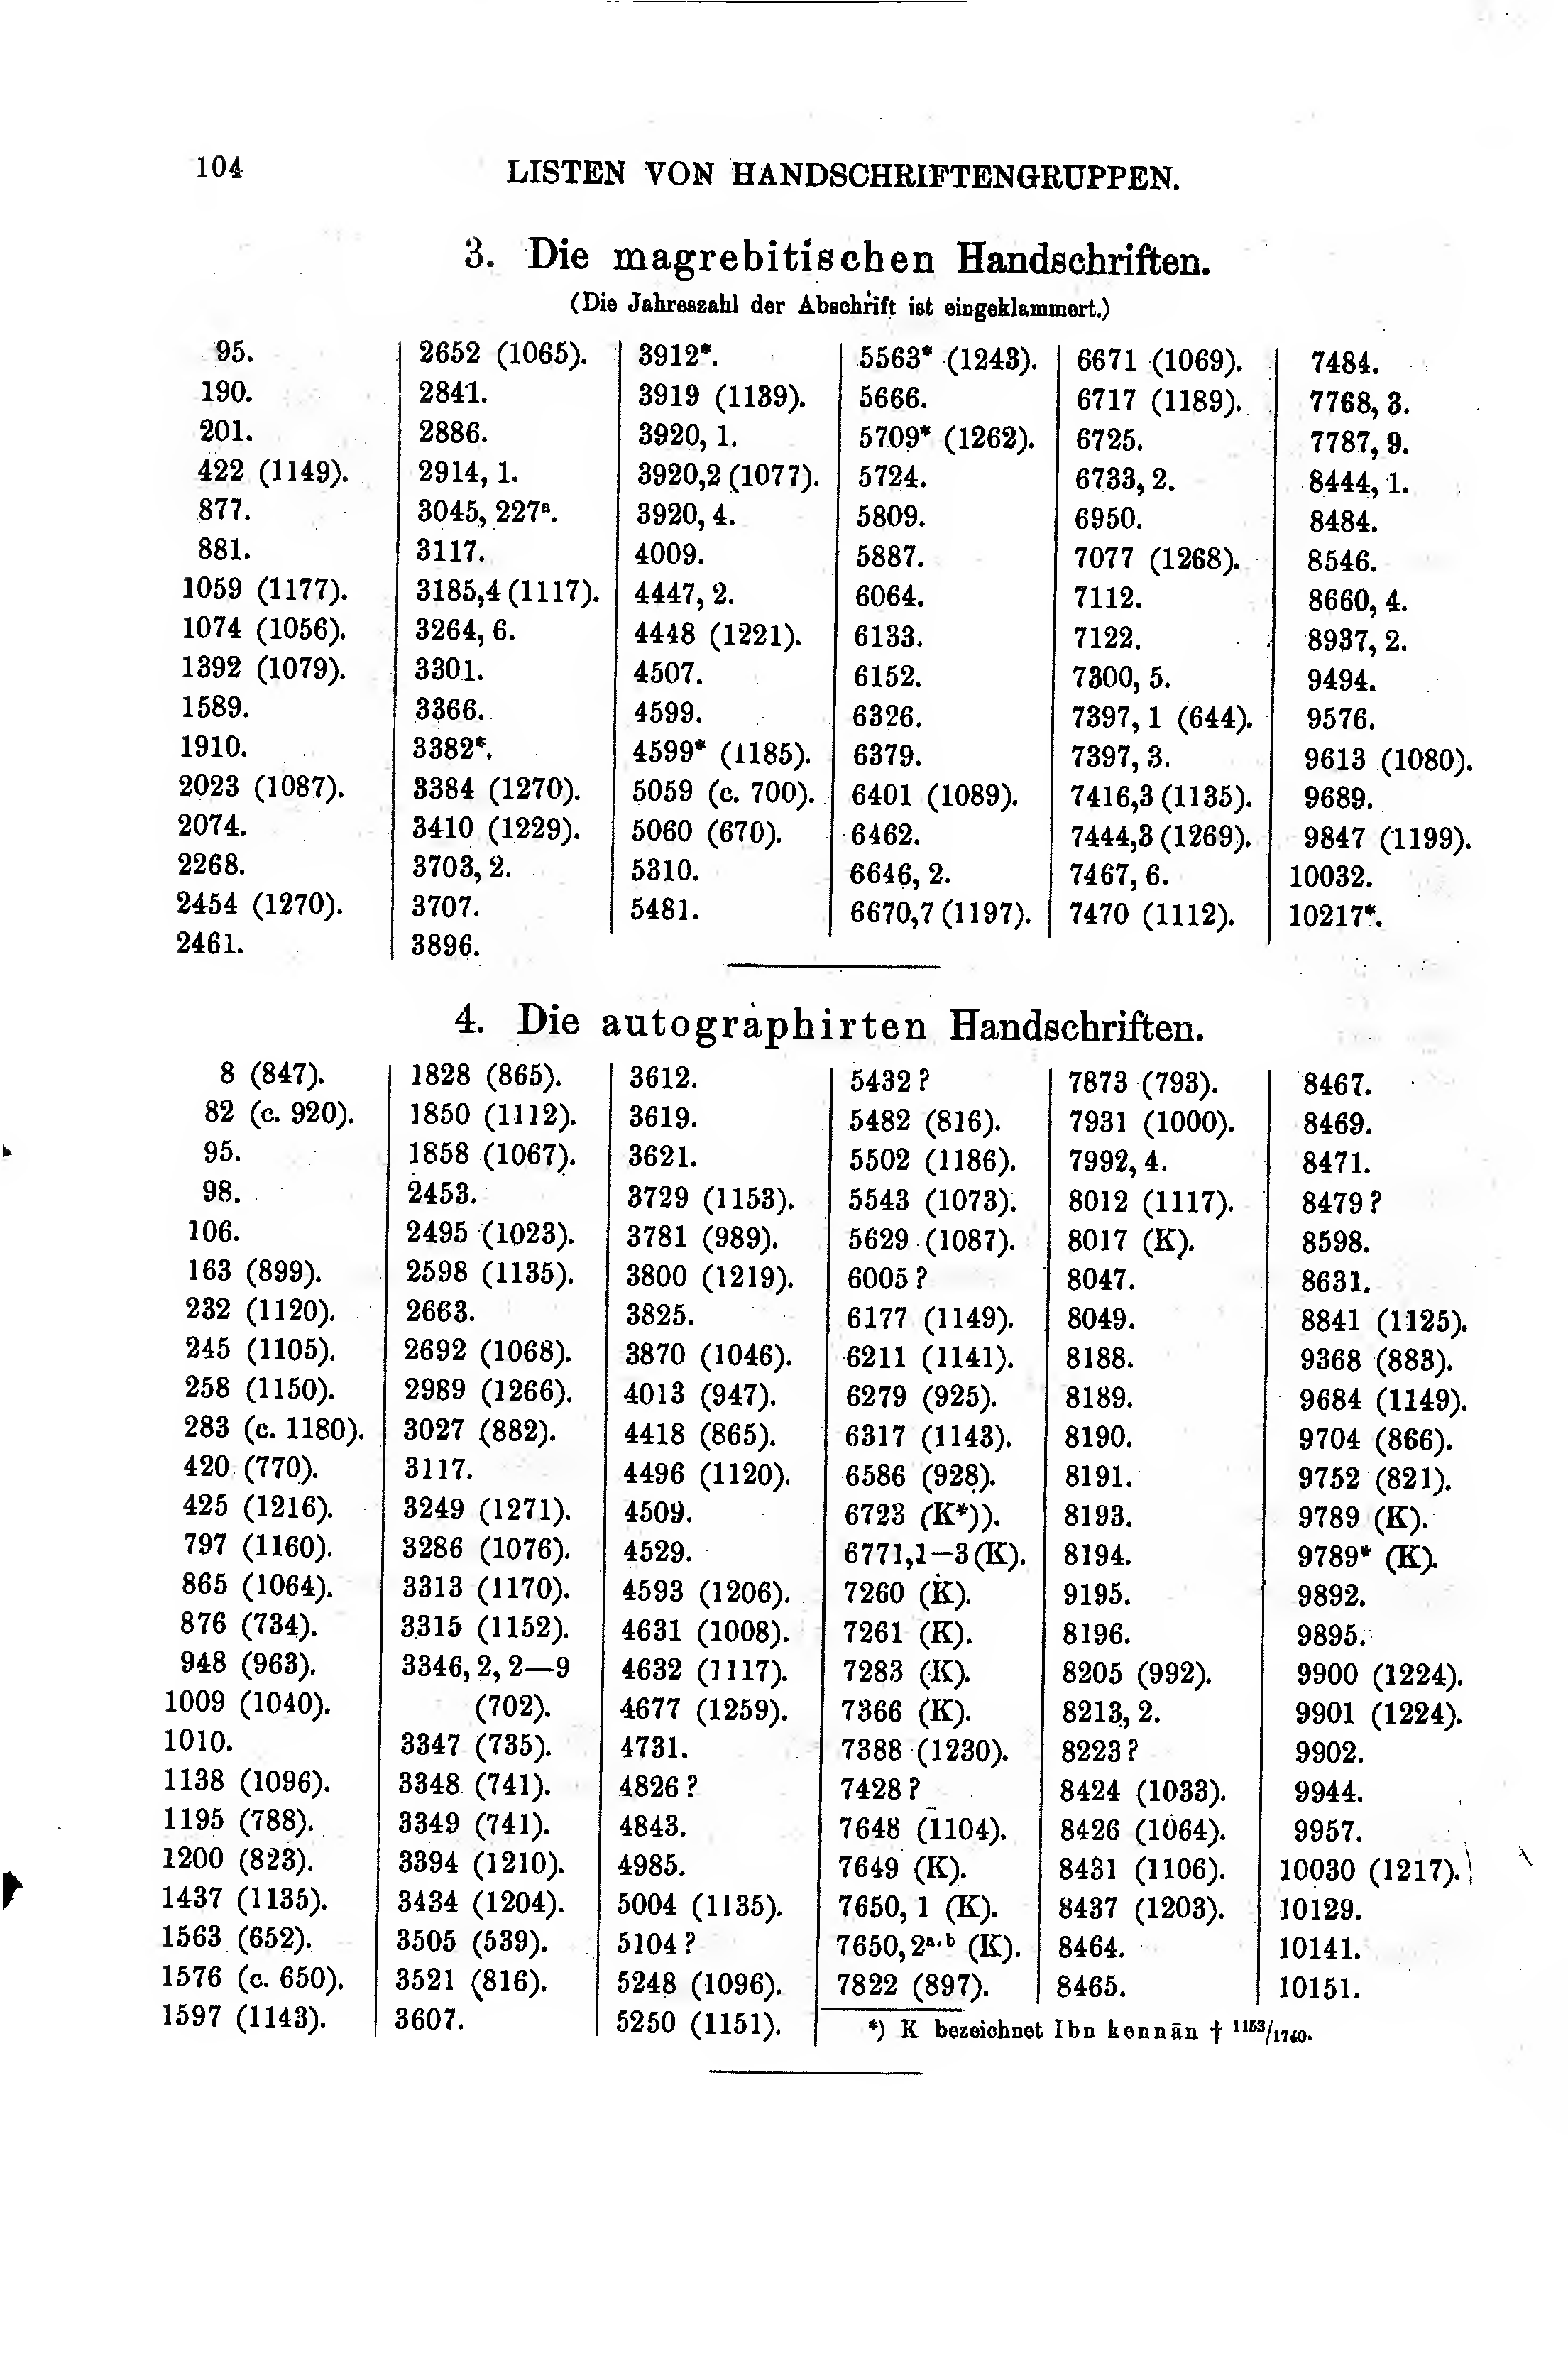 104
LISTEN VON HANDSCHRIFTENGRUPPEN.
3. Die magrebitischen Handschriften.
(Die Jahreszahl der Abschrift ist eingeklammert.)
95.
190.
201.
422 (1149).
877.
881.
1059 (1177).
1074 (1056).
1392 (1079).
1589.
1910.
2023 (1087).
2074.
2268.
2454 (1270).
2461.
2652 (1065).
2841.
2886.
2914, 1.
3045, 227ª.
3117.
3185,4 (1117).
3264, 6.
3301.
3366.
3382*.
3384 (1270).
3410 (1229).
3703, 2.
3707.
3896.
3912*.
3919 (1139).
3920, 1.
3920,2 (1077).
3920, 4.
4009.
4447, 2.
4448 (1221).
4507.
4599.
4599* (1185).
5059 (c. 700).
5060 (670).
5310.
5481.
5563* (1243).
5666.
5709* (1262).
5724.
5809.
5887.
6064.
6133.
6152.
6326.
6379.
6401 (1089).
6462.
6646, 2.
6670,7 (1197).
6671 (1069).
6717 (1189).
6725.
6733, 2.
6950.
7077 (1268).
7112.
7122.
7300, 5.
7397, 1 (644).
7397, 3.
7416,3 (1135).
7444,3 (1269).
7467, 6.
7470 (1112).
7484.
7768, 3.
7787, 9.
8444, 1.
8484.
8546.
8660, 4.
8937, 2.
9494.
9576.
9613 (1080).
9689.
9847 (1199).
10032.
10217*.
4. Die autographirten Handschriften.
8 (847).
82 (c. 920).
95.
98.
106.
163 (899).
232 (1120).
245 (1105).
258 (1150).
283 (c. 1180).
420 (770).
425 (1216).
797 (1160).
865 (1064).
876 (734).
948 (963).
1009 (1040).
1010.
1138 (1096).
1195 (788).
1200 (823).
1437 (1135).
1563 (652).
1576 (c. 650).
1597 (1143).
1828 (865).
1850 (1112).
1858 (1067).
2453.
2495 (1023).
2598 (1135).
2663.
2692 (1068).
2989 (1266).
3027 (882).
3117.
3249 (1271).
3286 (1076).
3313 (1170).
3315 (1152).
3346, 2, 2—9
(702).
3347 (735).
3348 (741).
3349 (741).
3394 (1210).
3434 (1204).
3505 (539).
3521 (816).
3607.
3612.
3619.
3621.
3729 (1153).
3781 (989).
3800 (1219).
3825.
3870 (1046).
4013 (947).
4418 (865).
4496 (1120).
4509.
4529.
4593 (1206).
4631 (1008).
4632 (1117).
4677 (1259).
4731.
4826 ?
4843.
4985.
5004 (1135).
5104 ?
5248 (1096).
5250 (1151).
5432 ?
5482 (816).
5502 (1186).
5543 (1073).
5629 (1087).
6005 ?
6177 (1149).
6211 (1141).
6279 (925).
6317 (1143).
6586 (928).
6723 (K*)).
6771,1—3 (K).
7260 (K).
7261 (K).
7283 (K).
7366 (K).
7388 (1230).
7428 ?
7648 (1104).
7649 (K).
7650, 1 (K).
7650, 2ᵃ·ᵇ (K).
7822 (897).
7873 (793).
7931 (1000).
7992, 4.
8012 (1117).
8017 (K).
8047.
8049.
8188.
8189.
8190.
8191.
8193.
8194.
9195.
8196.
8205 (992).
8213, 2.
8223 ?
8424 (1033).
8426 (1064).
8431 (1106).
8437 (1203).
8464.
8465.
8467.
8469.
8471.
8479 ?
8598.
8631.
8841 (1125).
9368 (883).
9684 (1149).
9704 (866).
9752 (821).
9789 (K).
9789* (K).
9892.
9895.
9900 (1224).
9901 (1224).
9902.
9944.
9957.
10030 (1217).
10129.
10141.
10151.
*) K bezeichnet Ibn kennān † 1153/1740.